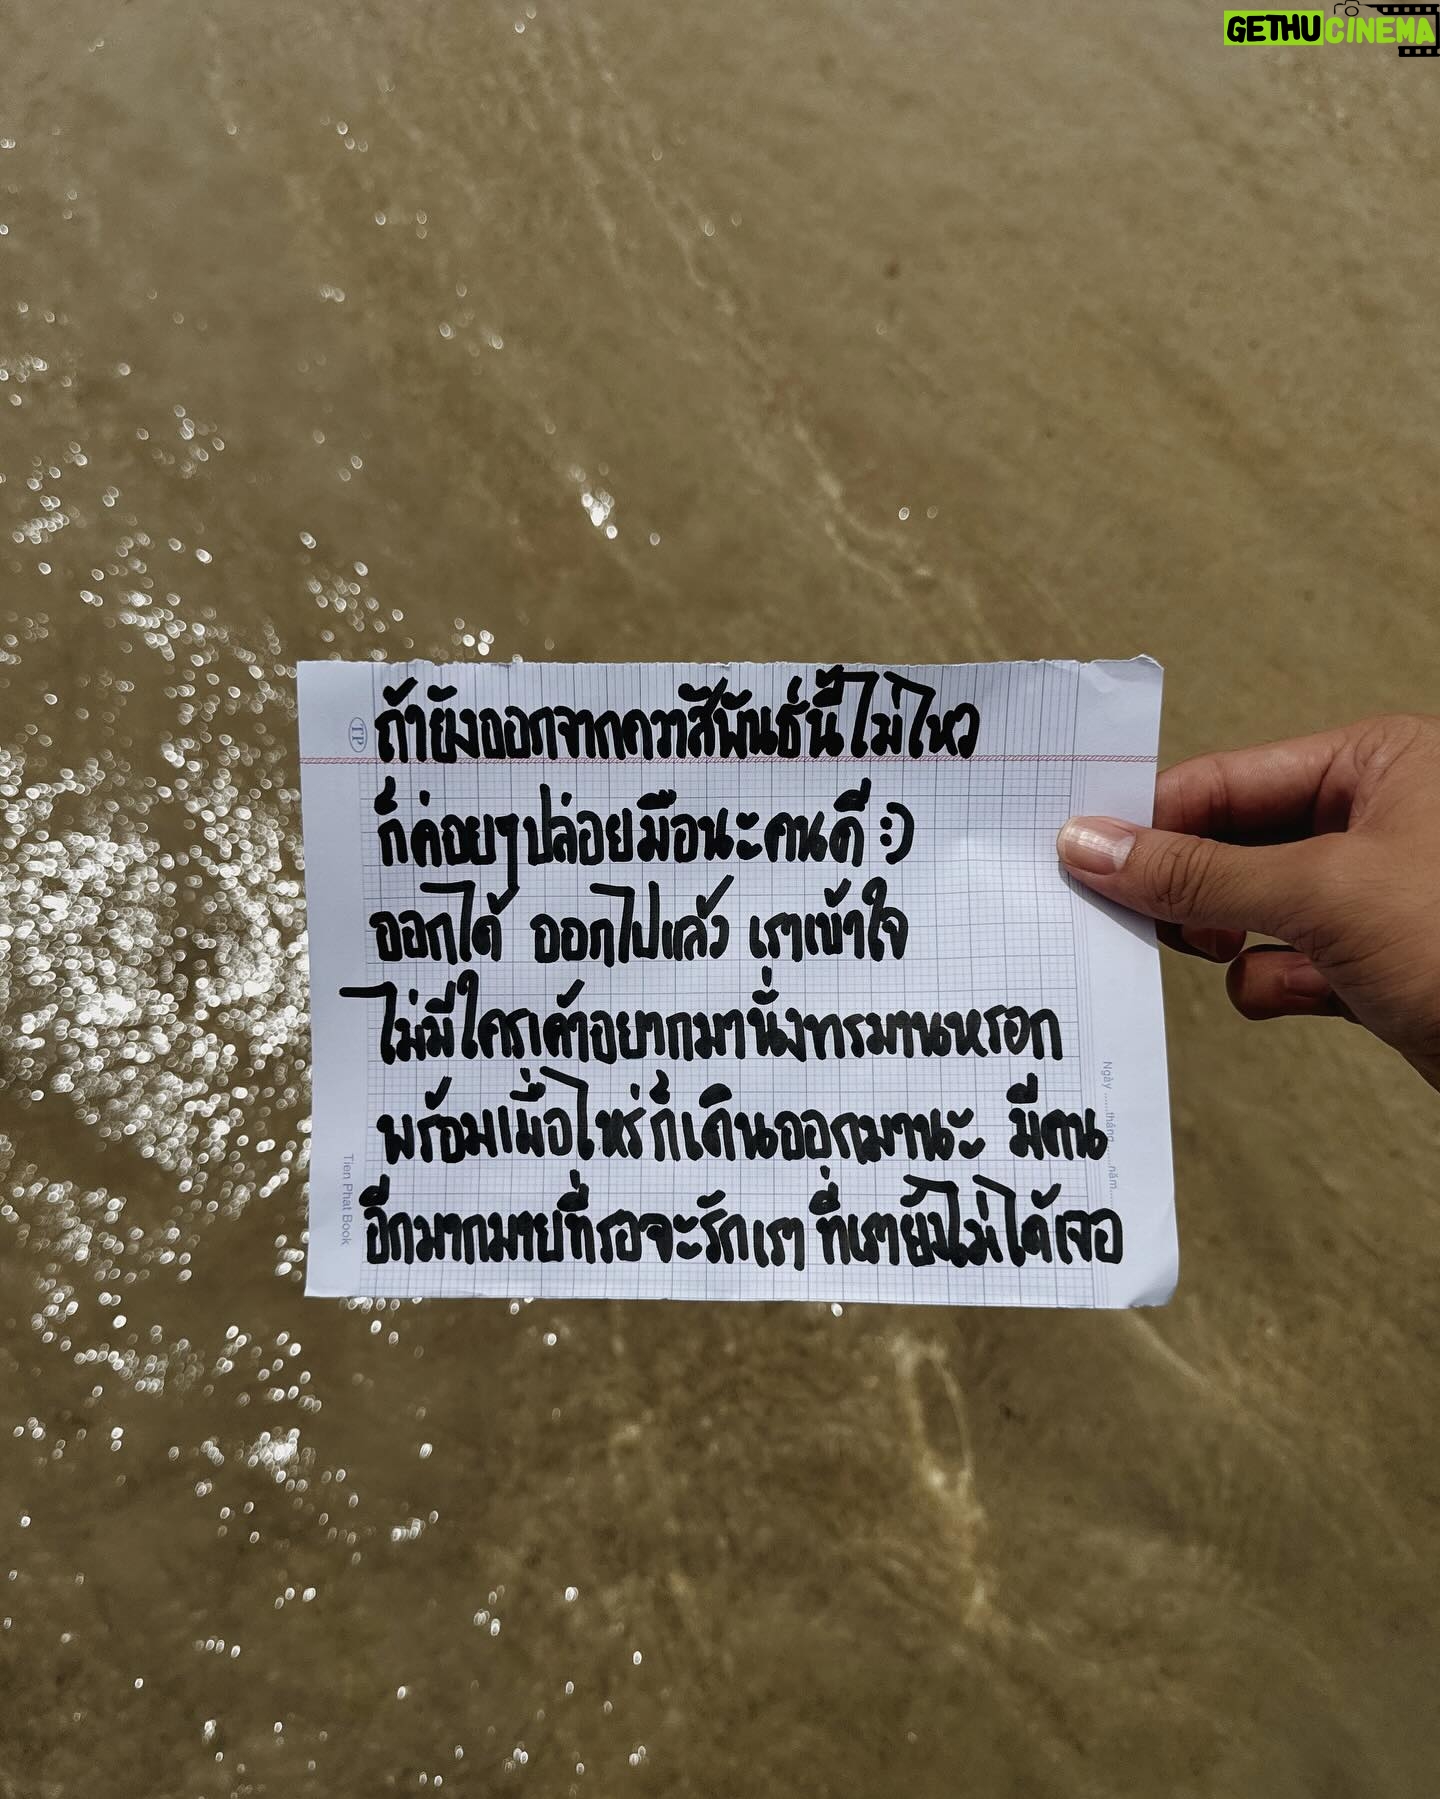 GETHUCINEMA
TP
ถ้ายังออกจากความสัมพันธ์นี้ไม่ไหว
ก็ค่อยๆปล่อยมือนะคนดี :)
ออกได้ ออกไปแล้ว เราเข้าใจ
ไม่มีใครเค้าอยากมานั่งทรมานหรอก
พร้อมเมื่อไหร่ก็เดินออกมานะ มีคน
อีกมากมายที่รอจะรักเรา ที่เรายังไม่ได้เจอ
Ngày ......tháng......năm......
Tien Phat Book